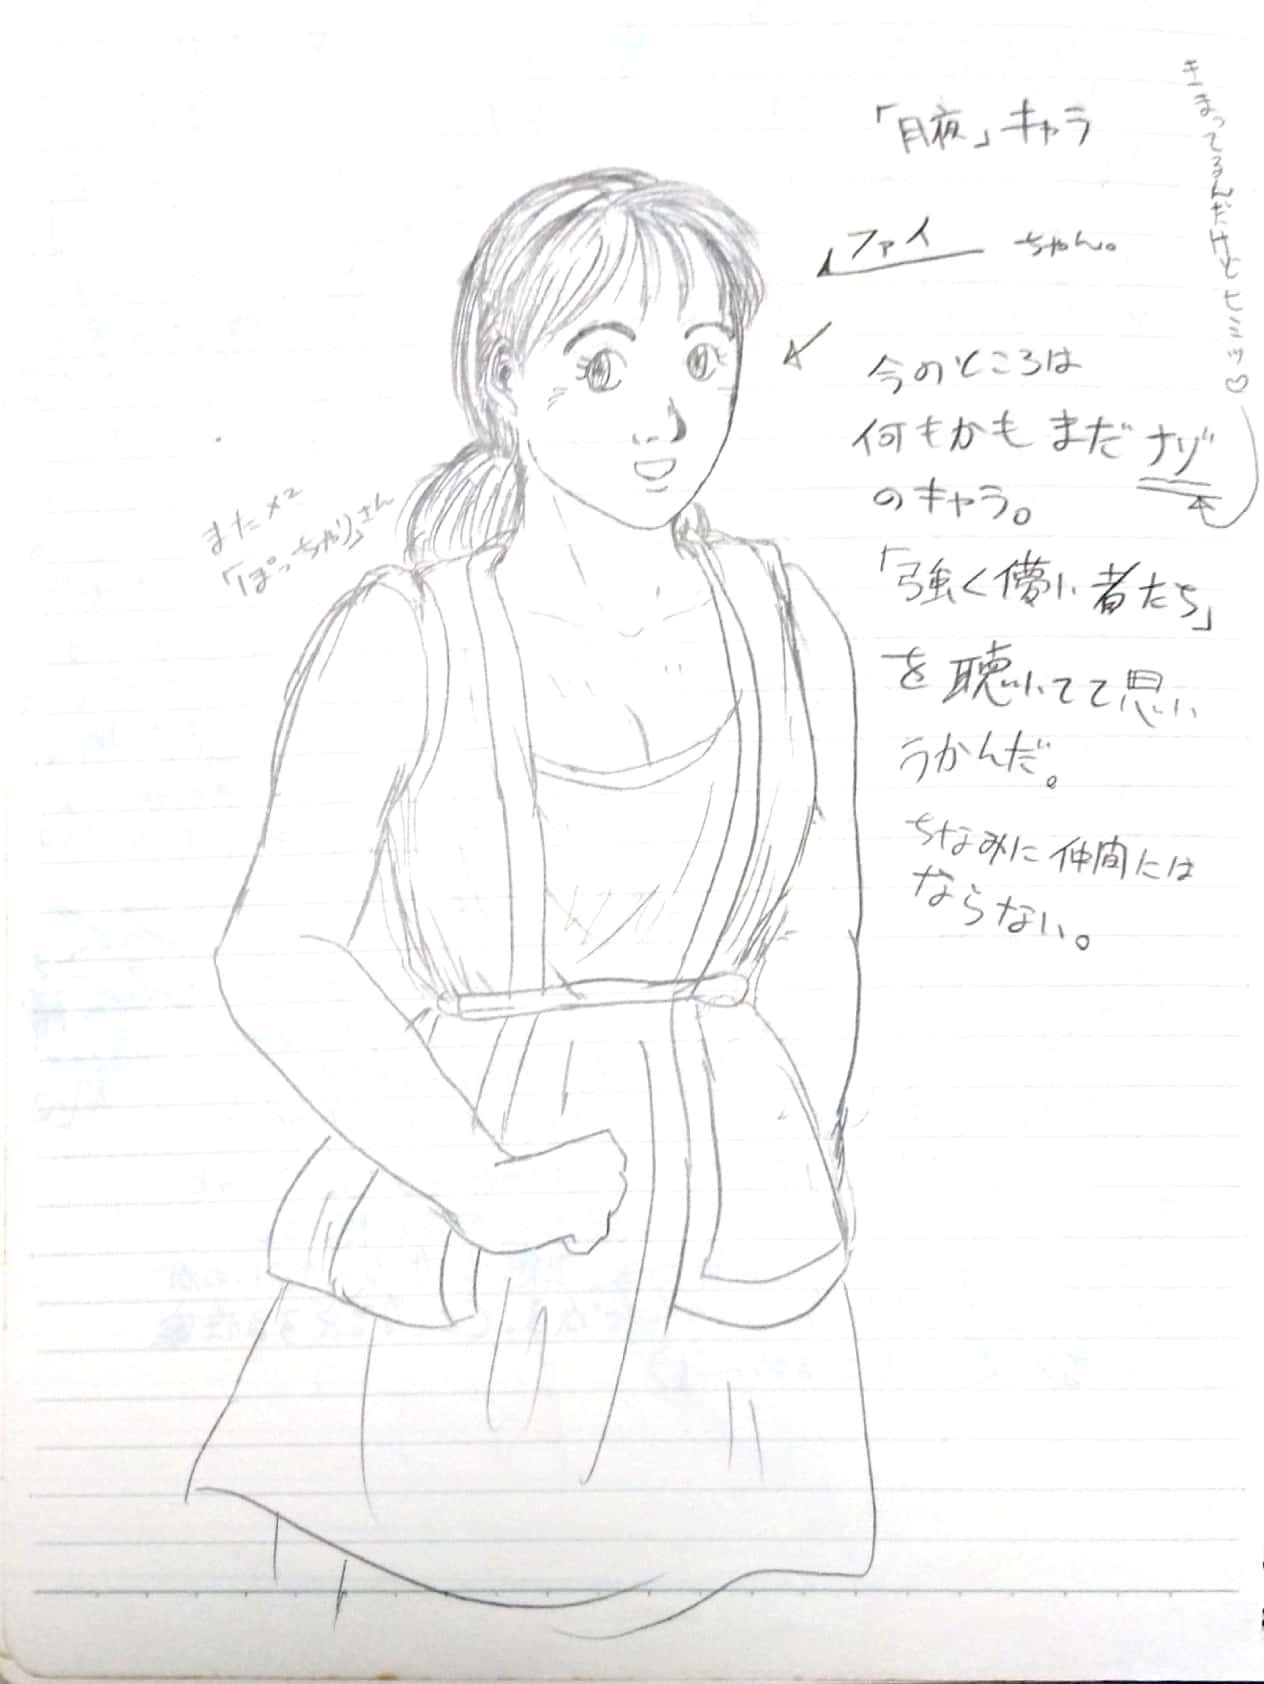 「月夜」キャラ
ファイ ちゃん。
今のところは
何もかも まだ ナゾ
のキャラ。
「強く儚い者たち」
を聴いてて思い
うかんだ。
ちなみに仲間には
ならない。
きまってるんだけどヒミツ♡
また×2
「ぽっちゃり」さん